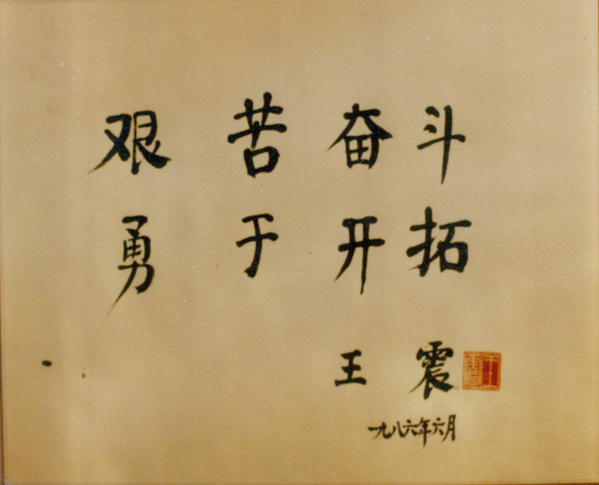 艰苦奋斗
勇于开拓
王震
一九八六年六月
王震